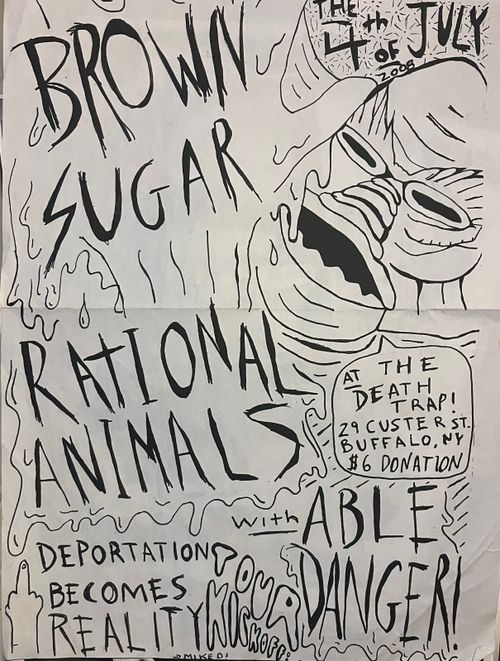 THE
4th
OF JULY
2008
BROWN
SUGAR
RATIONAL
ANIMALS
AT THE
DEATH
TRAP!
29 CUSTER ST.
BUFFALO, NY
$6 DONATION
with ABLE
DANGER!
DEPORTATION
BECOMES
REALITY
TOUR
KICKOFF!
MIKED!